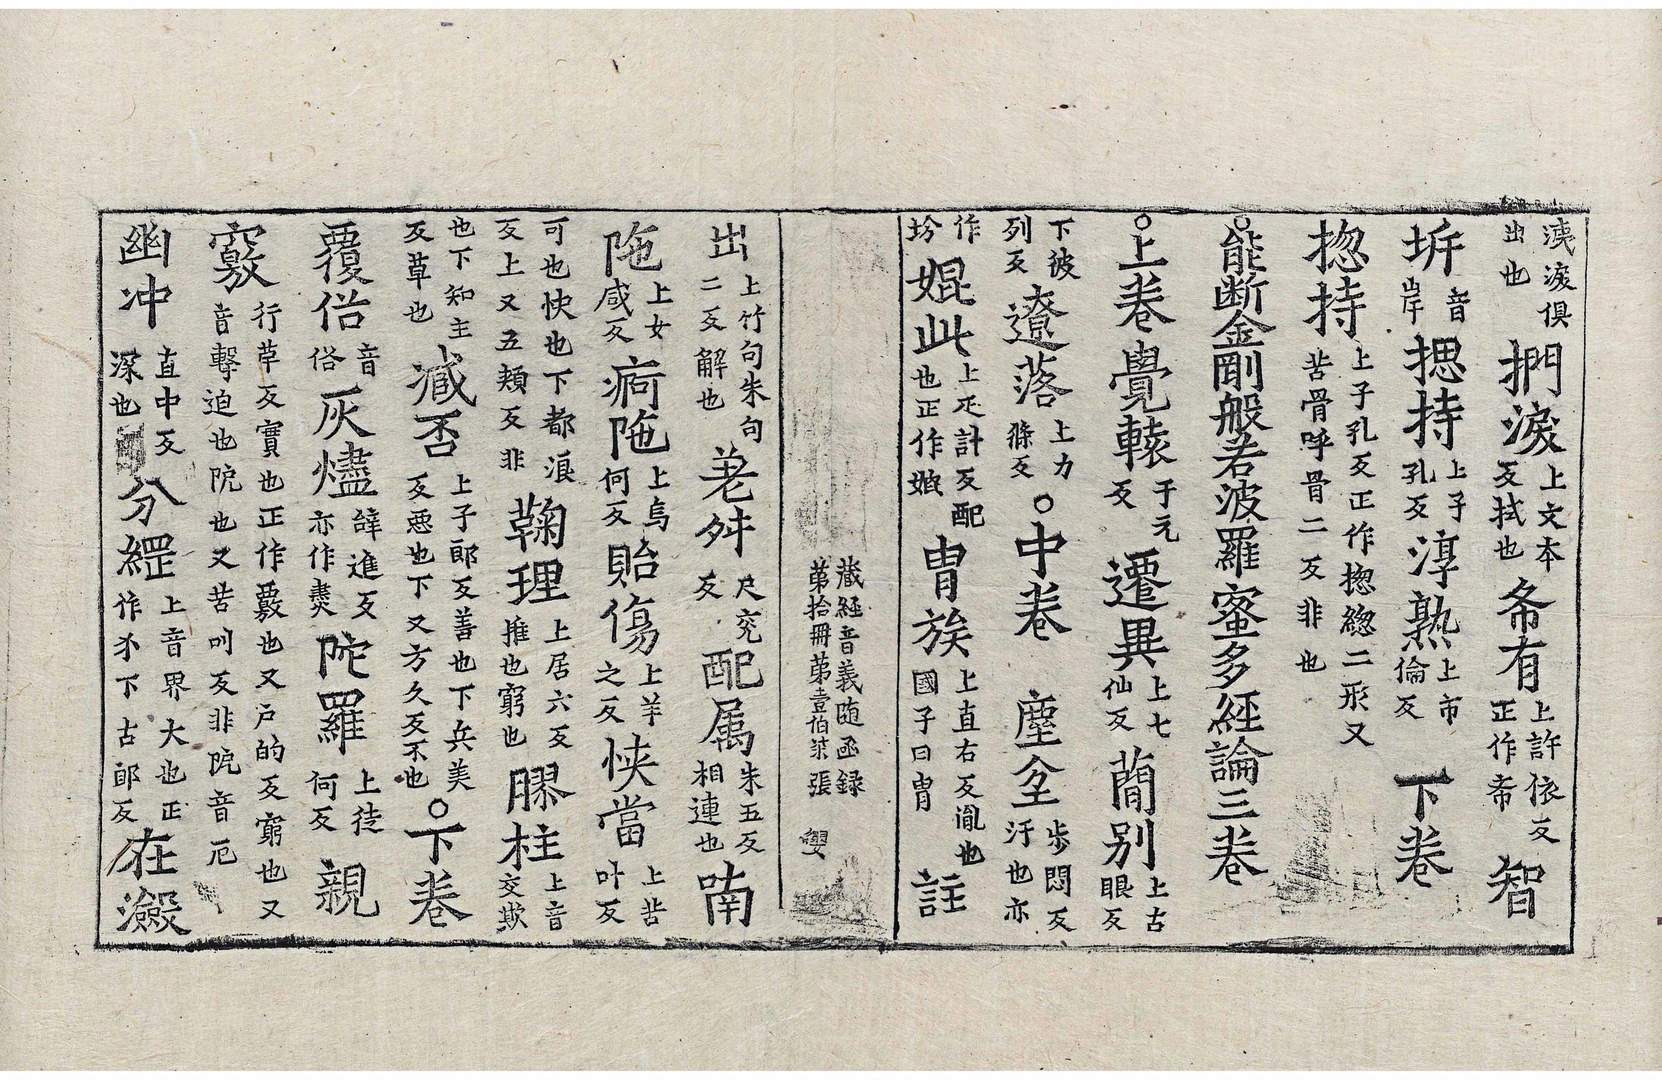 洟淚俱出也 捫淚上文本反拭也 希有上許依反正作希 智
坼音岸 揌持上子孔反 淳熟上市倫反 下卷
揔持上子孔反正作揔緫二形又苦骨呼骨二反非也
○能断金剛般若波羅蜜多經論三卷
○上卷 覺轅于元反 遷異上七仙反 蕑别上古眼反
下彼列反 遼落上力條反 ○中卷 塵坌步悶反汙也亦
作坋 媲此上疋計反配也正作媲 冑族上直右反胤也國子曰冑 註
藏經音義随函録
苐拾冊苐壹伯柒張 嬰
出上竹句朱句二反解也 荖舛尺兖反 配属朱五反相連也 喃
陁上女咸反 痾陁上烏何反 貽傷上羊之反 快當上苦叶反
可也快也下都浪反上又五頬反非 鞠理上居六反推也窮也 膠柱上音交欺
也下知主反草也 臧否上子郎反善也下兵美反惡也下又方久反不也 ○下卷
覆俗音俗 灰燼徐進反亦作㶳 陀羅上徒何反 親
竅行草反實也正作覈也又戸的反窮也又音擊迫也阸也又苦叫反非阸音厄
幽冲直中反深也 分繲上音界大也正作尒下古郎反 在瀲